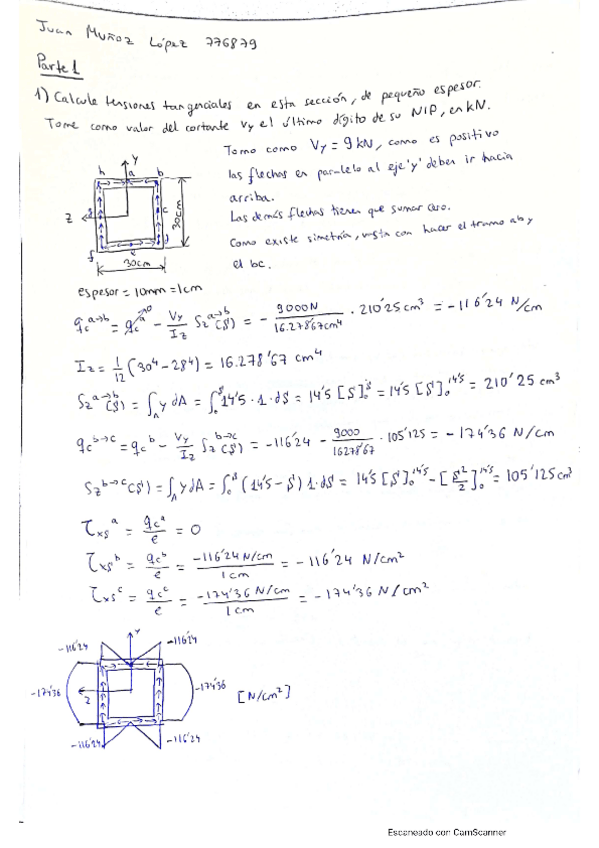 Juan Muñoz López 776879
Parte 1
1) Calcule tensiones tangenciales en esta sección, de pequeño espesor.
Tome como valor del cortante Vy el último dígito de su NIP, en kN.
Tomo como Vy = 9 kN, como es positivo
las flechas en paralelo al eje 'y' deben ir hacia
arriba.
Las demás flechas tienen que sumar cero.
Como existe simetría, basta con hacer el tramo ab y
el bc.
y
h a b
z g c
30cm
f e d
30cm
espesor = 10mm = 1cm
qc^{a→b} = qc^a - Vy/Iz Sz^{a→b}(S) = - 9000N/16.278'67cm⁴ · 210'25 cm³ = -116'24 N/cm
Iz = 1/12 (30⁴ - 28⁴) = 16.278'67 cm⁴
Sz^{a→b}(S) = ∫_A y dA = ∫₀^S 14'5 · 1 · dS = 14'5 [S]₀^S = 14'5 [S]₀^{14'5} = 210'25 cm³
qc^{b→c} = qc^b - Vy/Iz Sz^{b→c}(S) = -116'24 - 9000/16278'67 · 105'125 = -174'36 N/cm
Sz^{b→c}(S) = ∫_A y dA = ∫₀^S (14'5 - S) 1 · dS = 14'5 [S]₀^{14'5} - [S²/2]₀^{14'5} = 105'125 cm³
τxs^a = qc^a/e = 0
τxs^b = qc^b/e = -116'24 N/cm / 1cm = -116'24 N/cm²
τxs^c = qc^c/e = -174'36 N/cm / 1cm = -174'36 N/cm²
y
-116'24 -116'24
-174'36 z -174'36 [N/cm²]
-116'24 -116'24
Escaneado con CamScanner